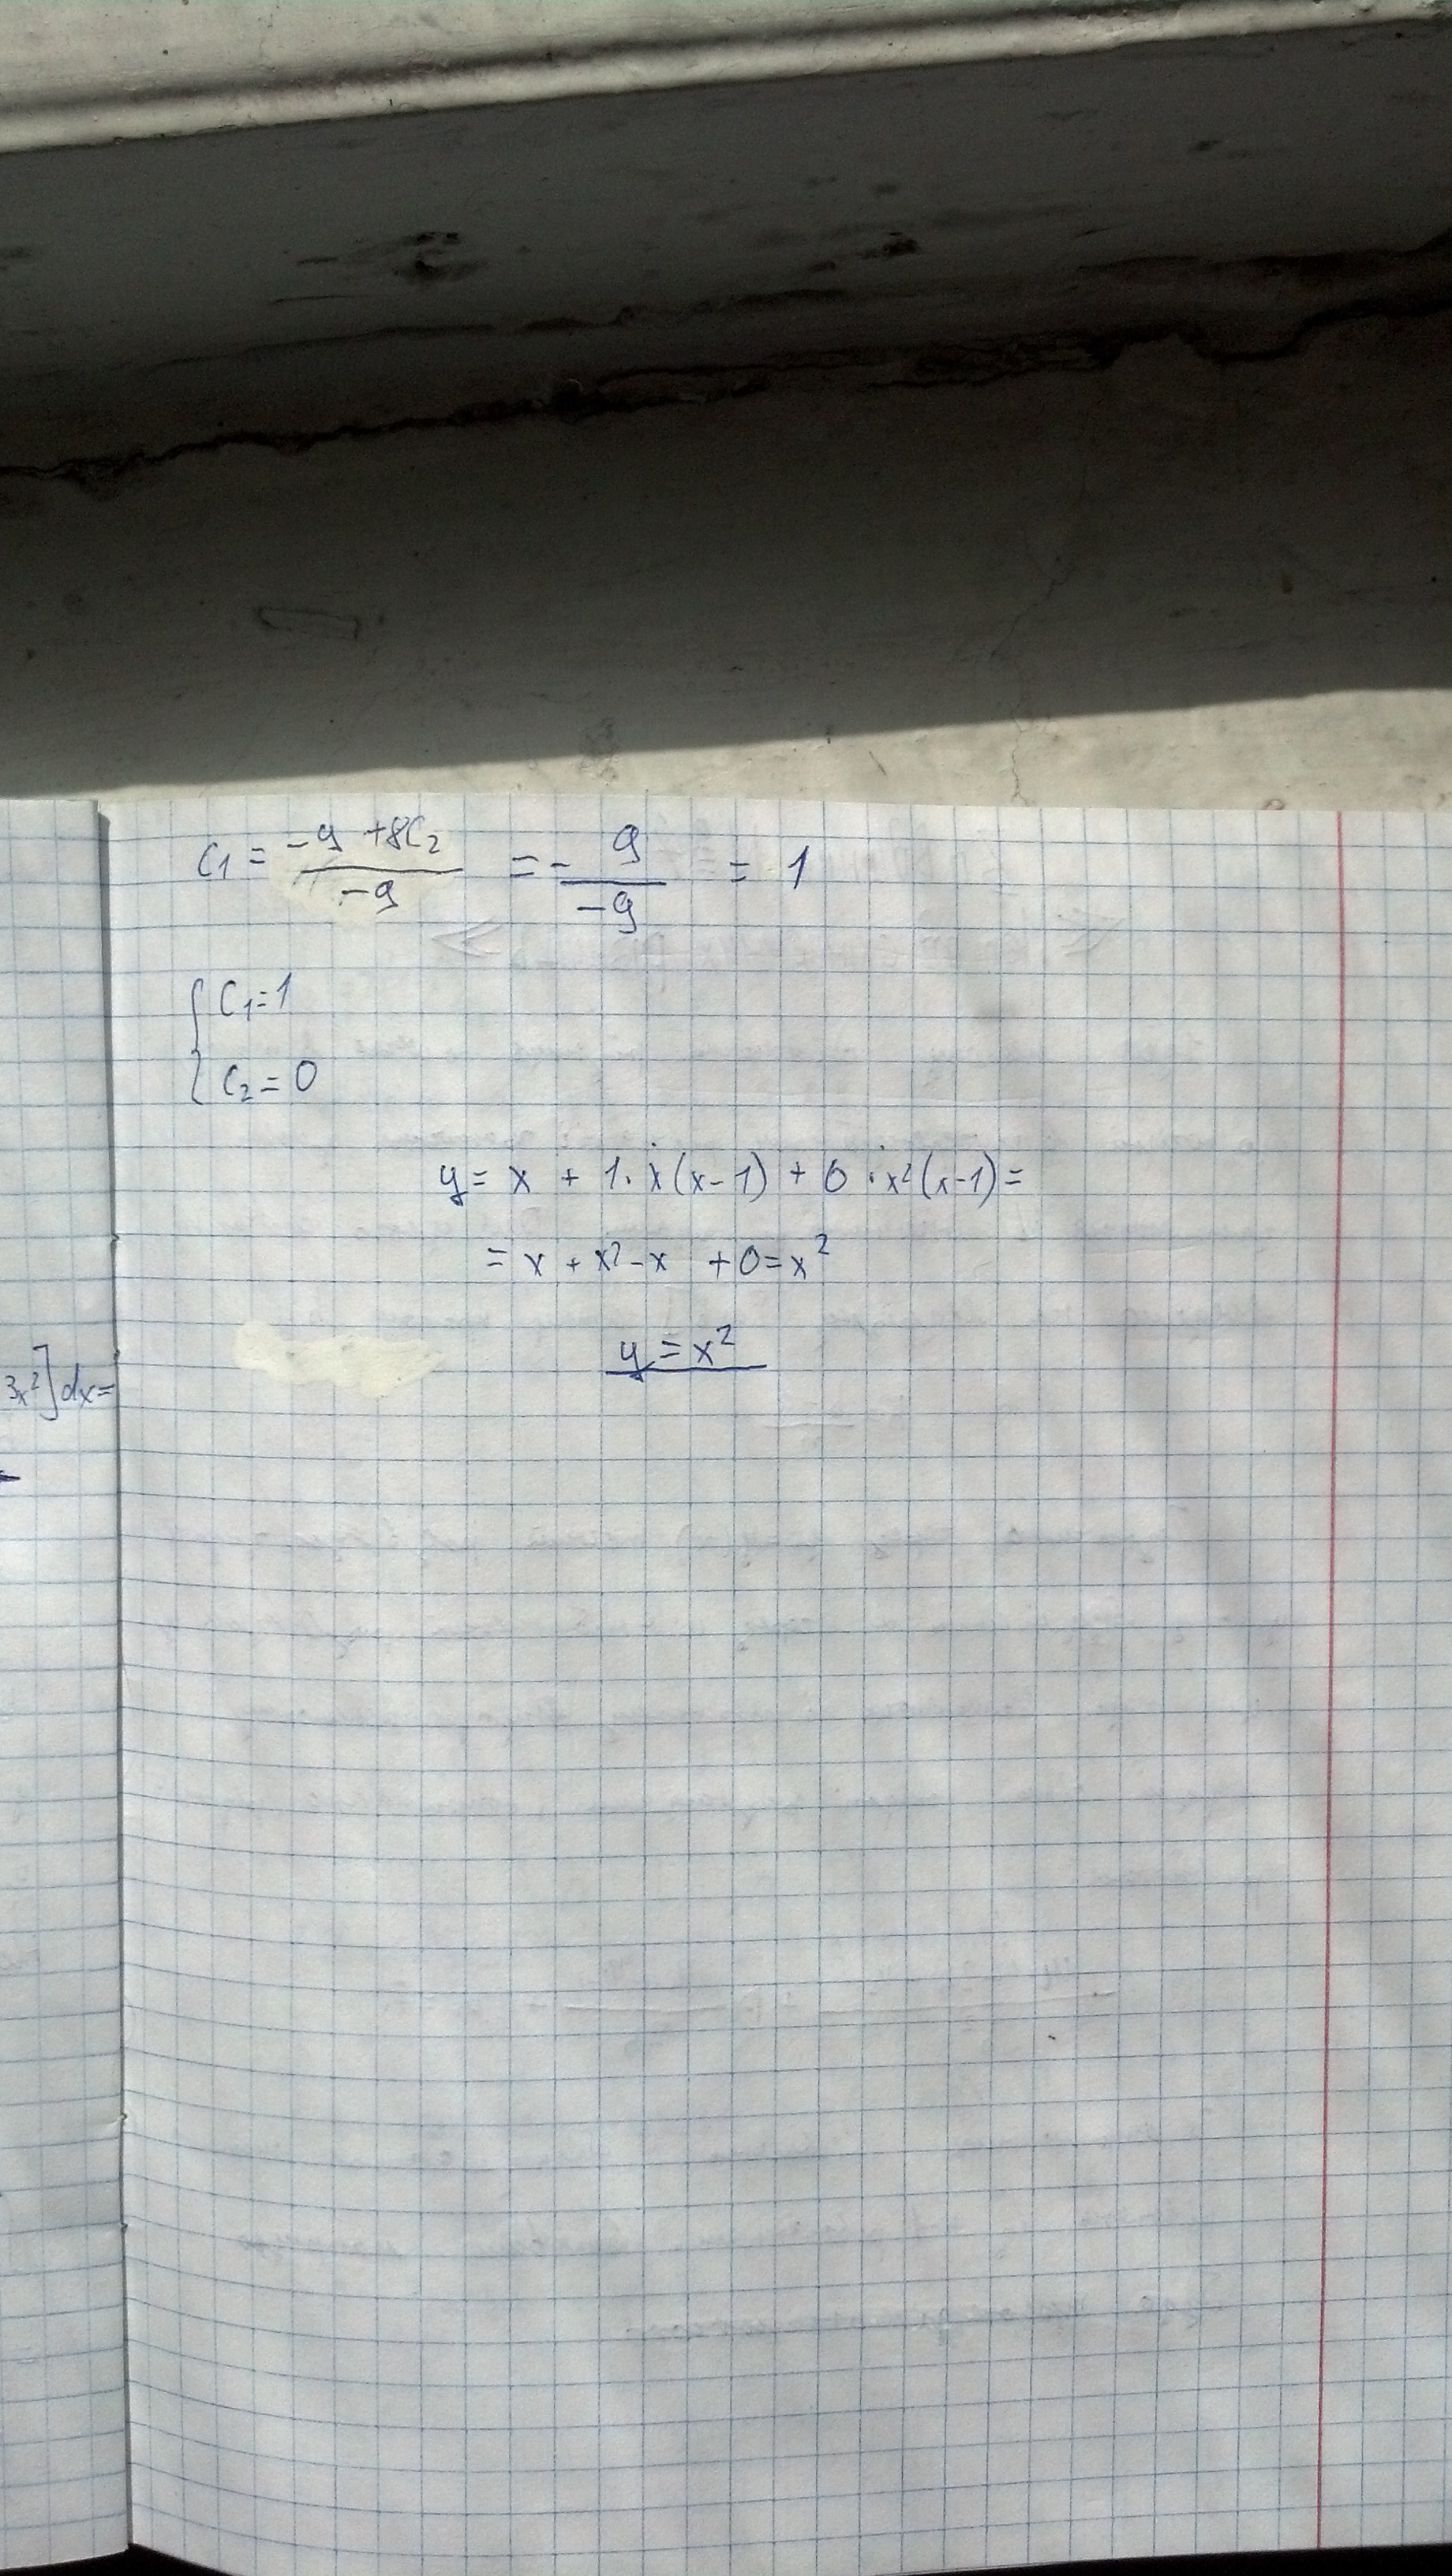 C₁ = (-9 + 8C₂)/(-9) = - 9/(-9) = 1
{ C₁ = 1
C₂ = 0
y = x + 1·x(x-1) + 0·x²(x-1) =
= x + x² - x + 0 = x²
y = x²
3x²]dx=